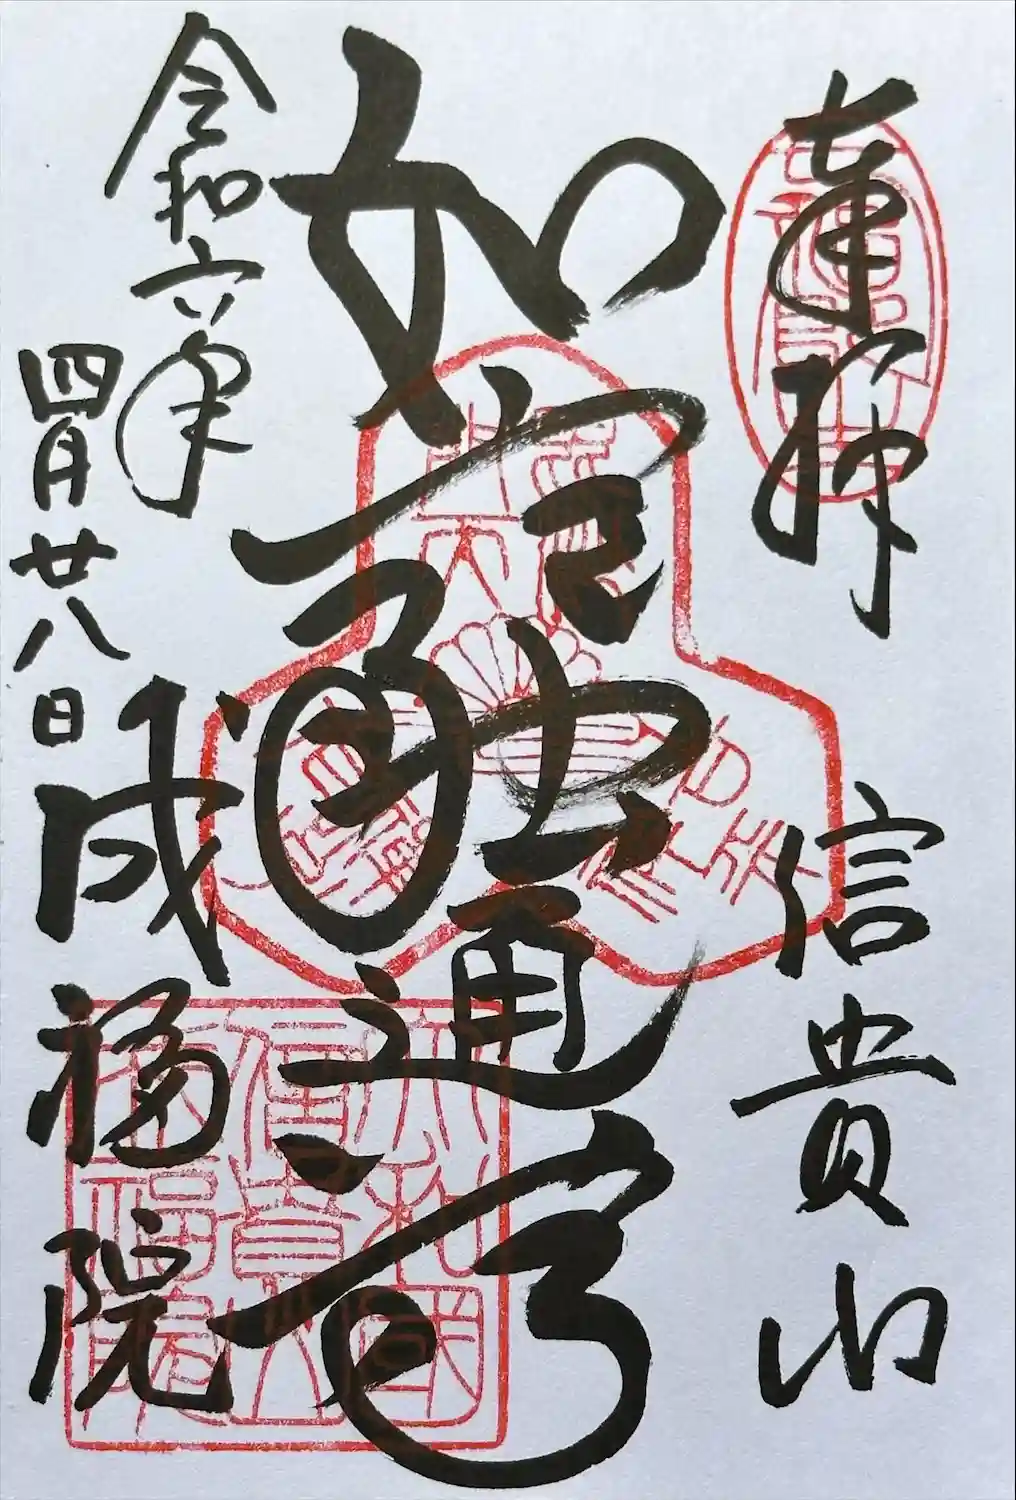 奉拝 信貴山
如意融通尊
令和六年
四月廿八日
成福院
大和國
信貴山
成福院